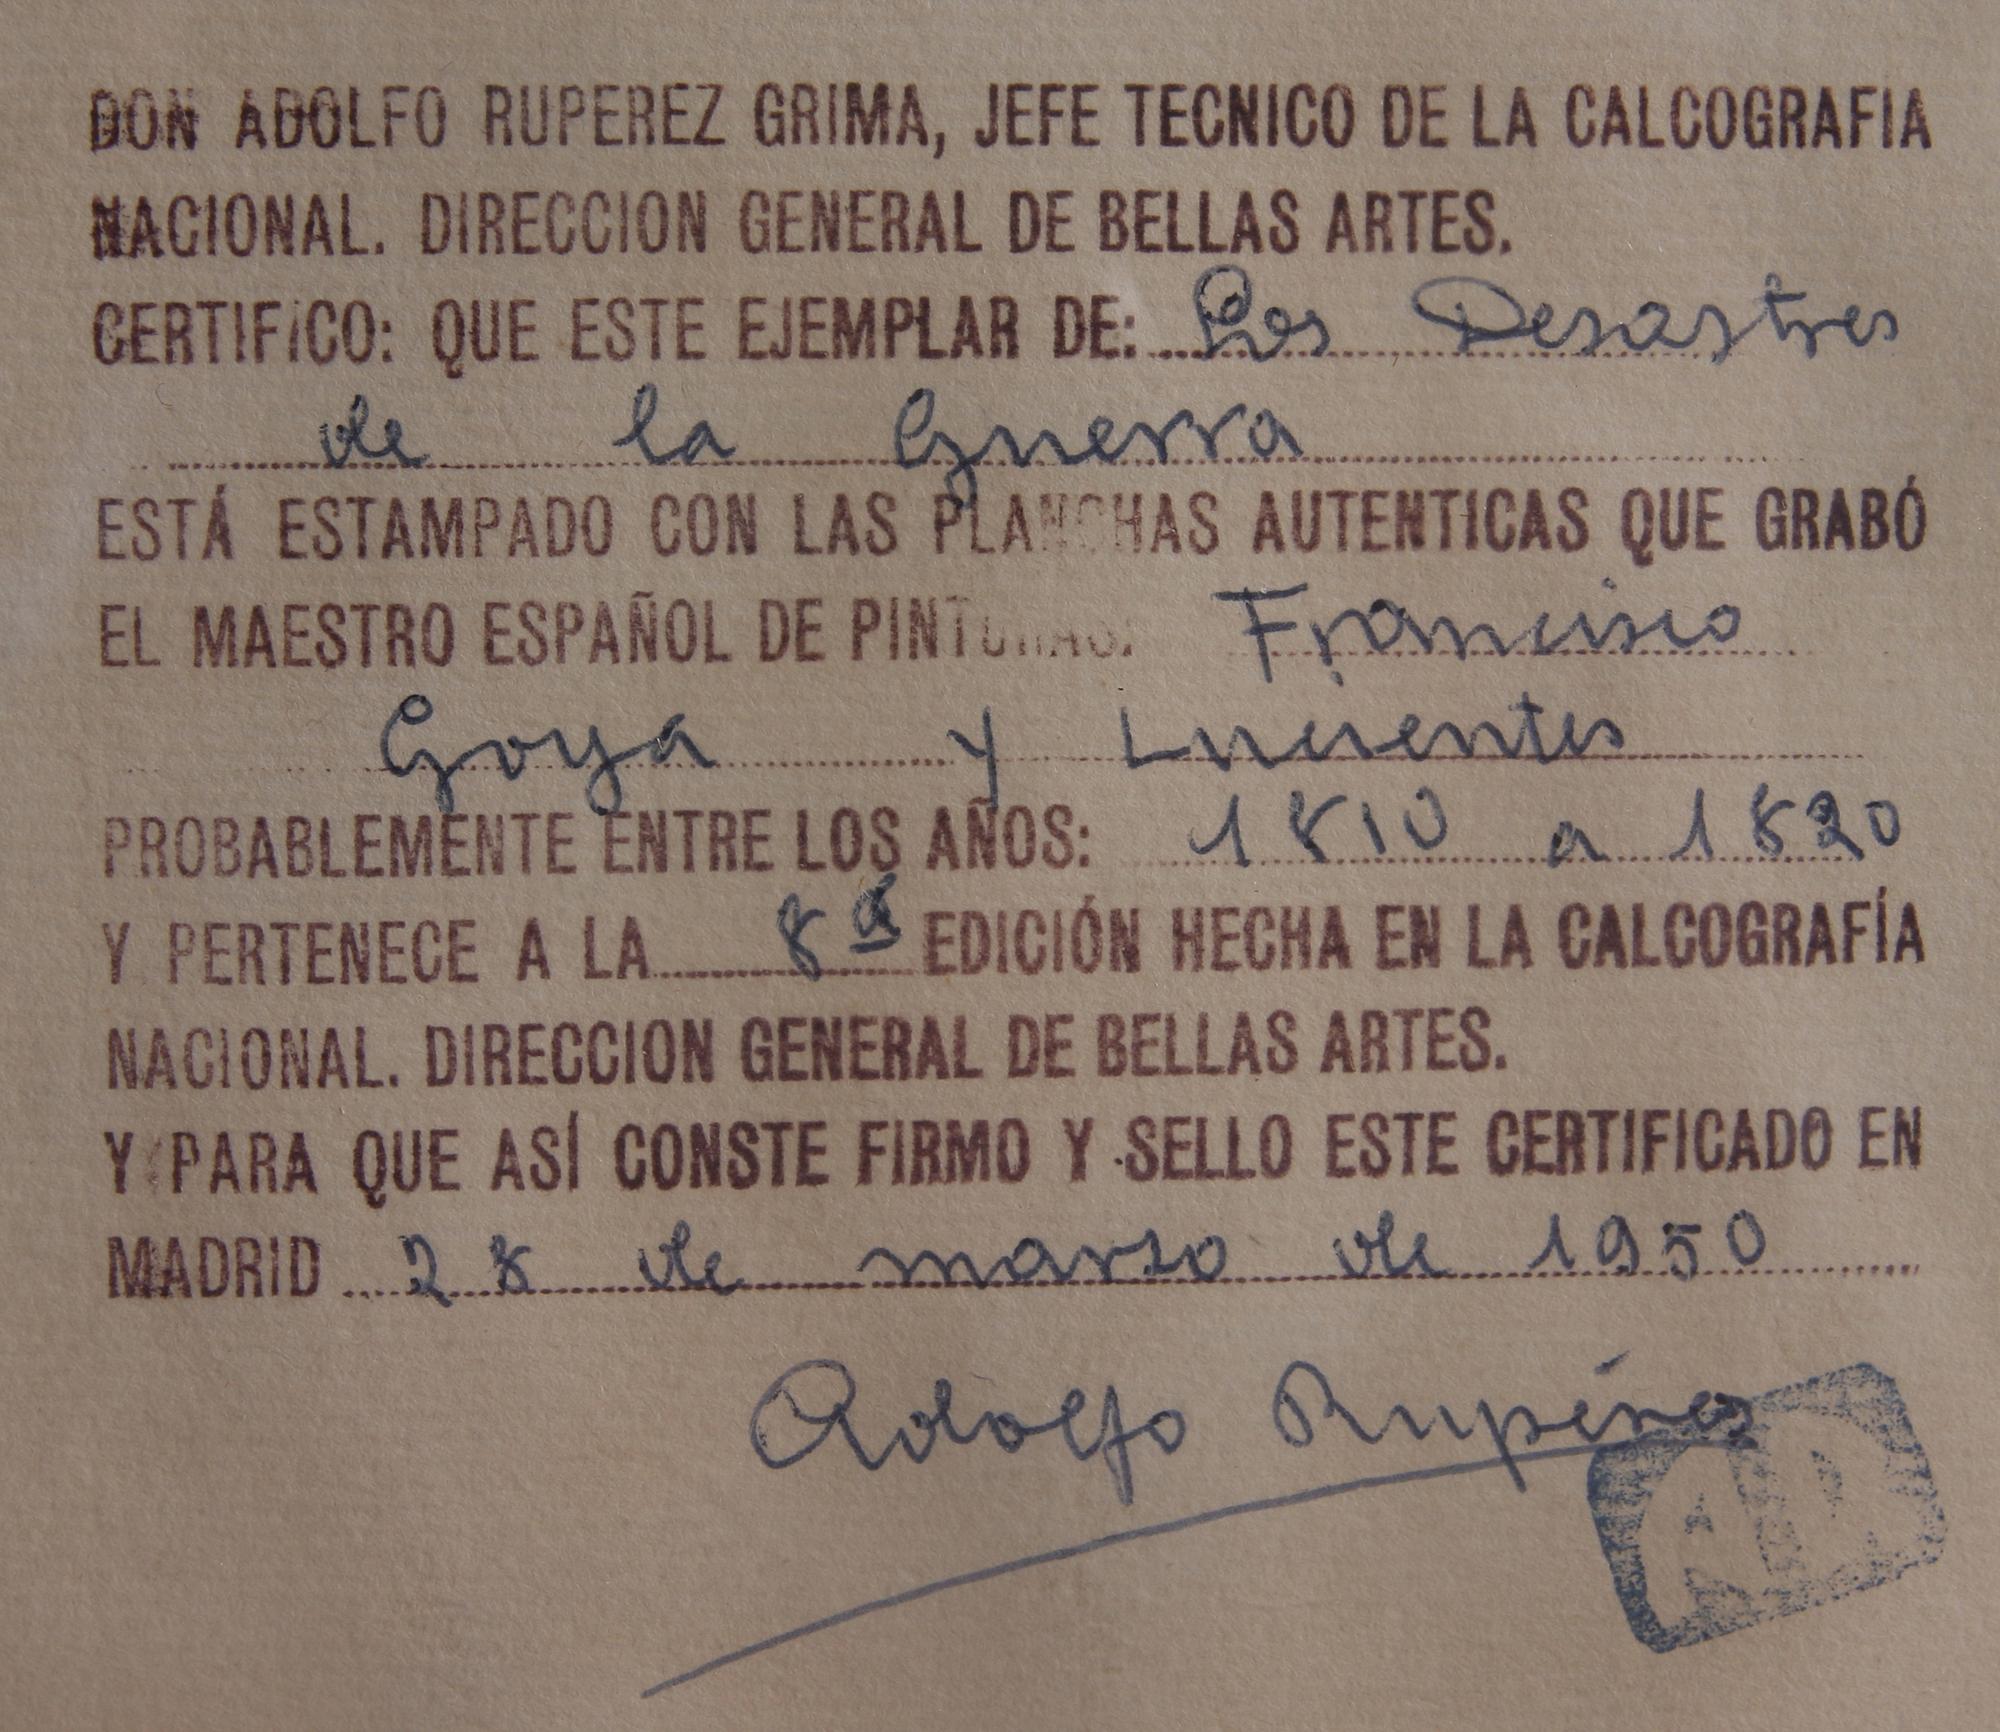 DON ADOLFO RUPEREZ GRIMA, JEFE TECNICO DE LA CALCOGRAFIA
NACIONAL. DIRECCION GENERAL DE BELLAS ARTES.
CERTIFICO: QUE ESTE EJEMPLAR DE: Los Desastres
de la Guerra
ESTÁ ESTAMPADO CON LAS PLANCHAS AUTENTICAS QUE GRABÓ
EL MAESTRO ESPAÑOL DE PINTURAS. Francisco
Goya y Lucientes
PROBABLEMENTE ENTRE LOS AÑOS: 1810 a 1820
Y PERTENECE A LA 8ª EDICIÓN HECHA EN LA CALCOGRAFÍA
NACIONAL. DIRECCION GENERAL DE BELLAS ARTES.
Y PARA QUE ASÍ CONSTE FIRMO Y SELLO ESTE CERTIFICADO EN
MADRID 28 de marzo de 1950
Adolfo Rupérez
AR